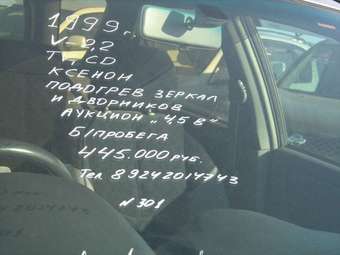 1999г.
V-2,2
TV, CD
КСЕНОН
ПОДОГРЕВ ЗЕРКАЛ
И ДВОРНИКОВ
АУКЦИОН „4,5 В"
Б/ПРОБЕГА
445.000 РУБ.
Тел. 89242014743
N 301